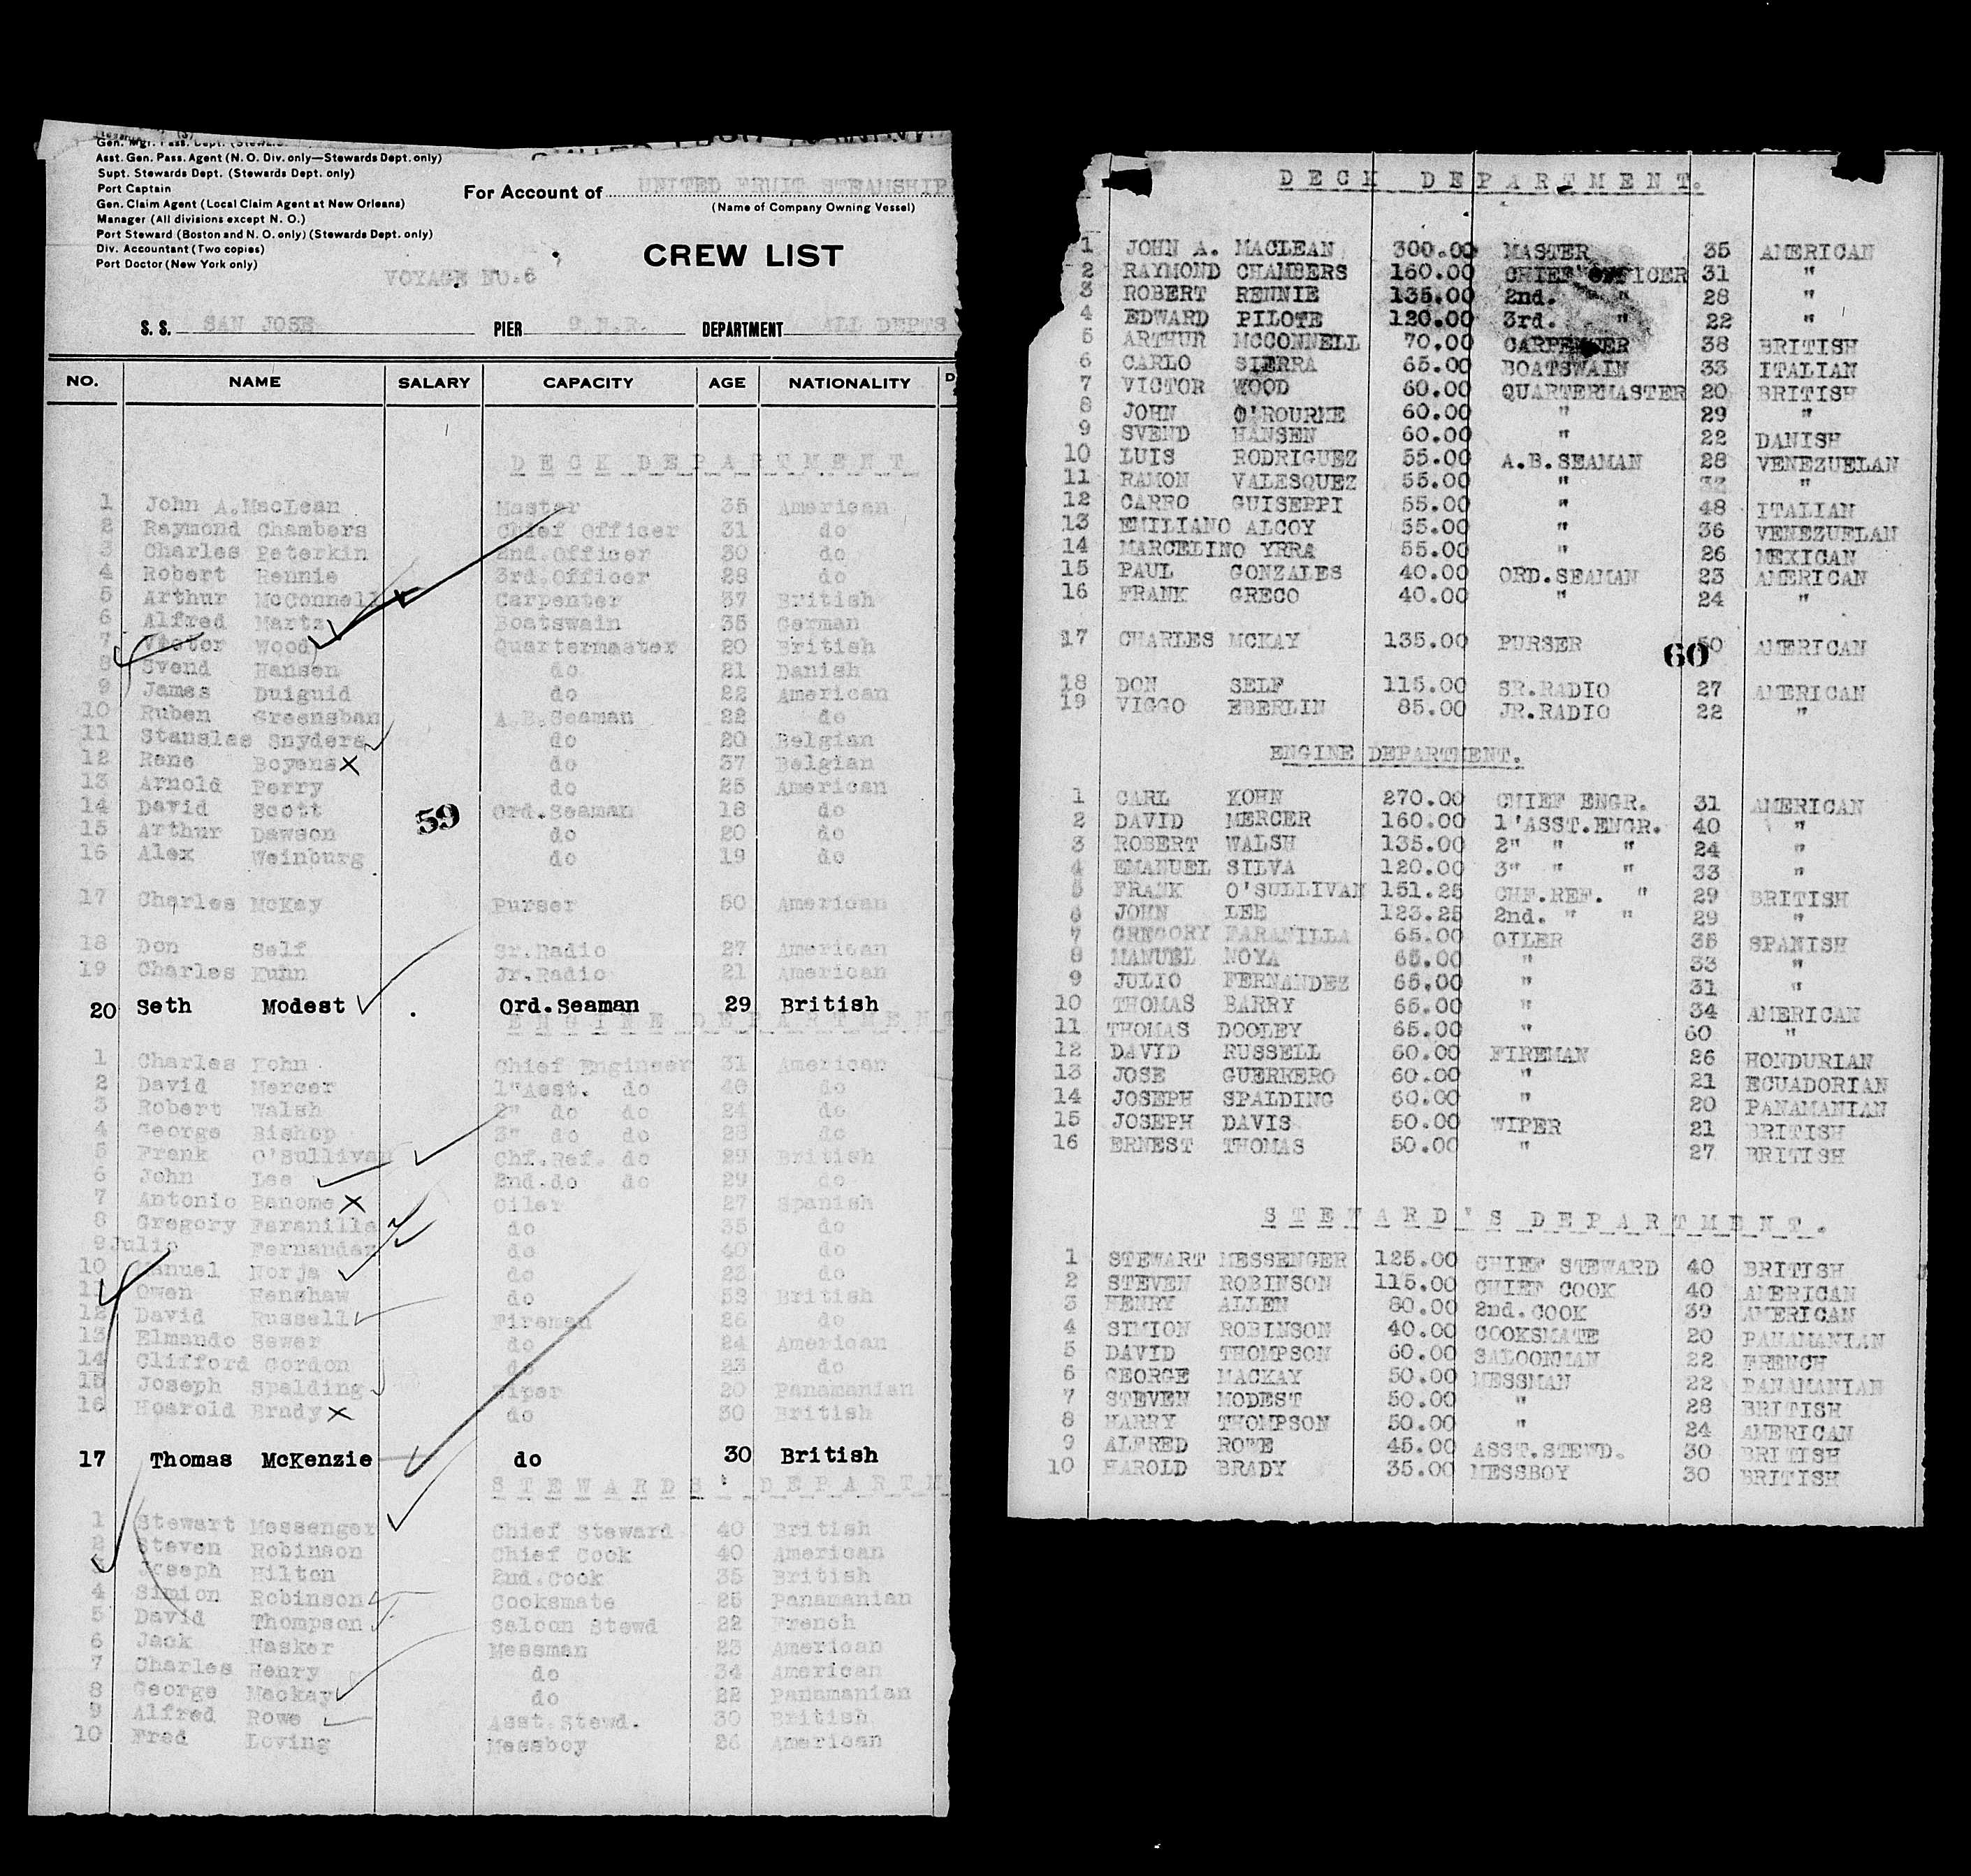 Gen. Mgr. Pass. Dept.
Asst. Gen. Pass. Agent (N. O. Div. only—Stewards Dept. only)
Supt. Stewards Dept. (Stewards Dept. only)
Port Captain
Gen. Claim Agent (Local Claim Agent at New Orleans)
Manager (All divisions except N. O.)
Port Steward (Boston and N. O. only) (Stewards Dept. only)
Div. Accountant (Two copies)
Port Doctor (New York only)
For Account of UNITED FRUIT STEAMSHIP
(Name of Company Owning Vessel)
CREW LIST
VOYAGE NO.6
S. S. SAN JOSE PIER 9 N.R. DEPARTMENT ALL DEPTS
NO. NAME SALARY CAPACITY AGE NATIONALITY D
DECK DEPARTMENT
1 John A.MacLean Master 35 American
2 Raymond Chambers Chief Officer 31 do
3 Charles Peterkin 2nd.Officer 30 do
4 Robert Rennie 3rd.Officer 28 do
5 Arthur McConnell Carpenter 37 British
6 Alfred Martz Boatswain 35 German
7 Victor Wood Quartermaster 20 British
8 Svend Hansen do 21 Danish
9 James Duiguid do 22 American
10 Ruben Greensban A.B.Seaman 22 do
11 Stanslas Snyders do 20 Belgian
12 Rene Boyens X do 37 Belgian
13 Arnold Perry do 25 American
14 David Scott 59 Ord.Seaman 18 do
15 Arthur Dawson do 20 do
16 Alex Weinburg do 19 do
17 Charles McKay Purser 50 American
18 Don Self Sr.Radio 27 American
19 Charles Kuhn Jr.Radio 21 American
20 Seth Modest Ord.Seaman 29 British
ENGINE DEPARTMENT
1 Charles Kohn Chief Engineer 31 American
2 David Mercer 1"Asst. do 40 do
3 Robert Walsh 2" do do 24 do
4 George Bishop 3" do do 28 do
5 Frank O'Sullivan Chf.Ref. do 29 British
6 John Lee 2nd.do do 29 do
7 Antonio Banome X Oiler 27 Spanish
8 Gregory Faranilla do 35 do
9 Julio Fernandez do 40 do
10 Manuel Norja do 23 do
11 Owen Henshaw do 52 British
12 David Russell Fireman 26 do
13 Elmando Sewer do 24 American
14 Clifford Gordon do 23 do
15 Joseph Spalding Wiper 20 Panamanian
16 Hoarold Brady X do 30 British
17 Thomas McKenzie do 30 British
STEWARDS' DEPARTM
1 Stewart Messenger Chief Steward 40 British
2 Steven Robinson Chief Cook 40 American
3 Joseph Hilton 2nd.Cook 35 British
4 Simion Robinson Cooksmate 25 Panamanian
5 David Thompson Saloon Stewd 22 French
6 Jack Hasker Messman 23 American
7 Charles Henry do 34 American
8 George Mackay do 22 Panamanian
9 Alfred Rowe Asst.Stewd. 30 British
10 Fred Loving Messboy 26 American
DECK DEPARTMENT.
1 JOHN A. MACLEAN 300.00 MASTER 35 AMERICAN
2 RAYMOND CHAMBERS 160.00 CHIEF OFFICER 31 "
3 ROBERT RENNIE 135.00 2nd. " 28 "
4 EDWARD PILOTE 120.00 3rd. " 22 "
5 ARTHUR MCCONNELL 70.00 CARPENTER 38 BRITISH
6 CARLO SIERRA 65.00 BOATSWAIN 33 ITALIAN
7 VICTOR WOOD 60.00 QUARTERMASTER 20 BRITISH
8 JOHN O'ROURKE 60.00 " 29 "
9 SVEND HANSEN 60.00 " 22 DANISH
10 LUIS RODRIGUEZ 55.00 A.B.SEAMAN 28 VENEZUELAN
11 RAMON VALESQUEZ 55.00 " "
12 CARRO GUISEPPI 55.00 " 48 ITALIAN
13 EMILIANO ALCOY 55.00 " 36 VENEZUELAN
14 MARCELINO YRRA 55.00 " 26 MEXICAN
15 PAUL GONZALES 40.00 ORD.SEAMAN 23 AMERICAN
16 FRANK GRECO 40.00 " 24 "
17 CHARLES MCKAY 135.00 PURSER 50 AMERICAN
60
18 DON SELF 115.00 SR.RADIO 27 AMERICAN
19 VIGGO EBERLIN 85.00 JR.RADIO 22 "
ENGINE DEPARTMENT.
1 CARL KOHN 270.00 CHIEF ENGR. 31 AMERICAN
2 DAVID MERCER 160.00 1'ASST.ENGR. 40 "
3 ROBERT WALSH 135.00 2" " " 24 "
4 EMANUEL SILVA 120.00 3" " " 33 "
5 FRANK O'SULLIVAN 151.25 CHF.REF. " 29 BRITISH
6 JOHN LEE 123.25 2nd. " " 29 "
7 GREGORY FARANILLA 65.00 OILER 35 SPANISH
8 MANUEL NOYA 65.00 " 33 "
9 JULIO FERNANDEZ 65.00 " 31 "
10 THOMAS BARRY 65.00 " 34 AMERICAN
11 THOMAS DOOLEY 65.00 " 60 "
12 DAVID RUSSELL 60.00 FIREMAN 26 HONDURIAN
13 JOSE GUERRERO 60.00 " 21 ECUADORIAN
14 JOSEPH SPALDING 60.00 " 20 PANAMANIAN
15 JOSEPH DAVIS 50.00 WIPER 21 BRITISH
16 ERNEST THOMAS 50.00 " 27 BRITISH
STEWARD'S DEPARTMENT.
1 STEWART MESSENGER 125.00 CHIEF STEWARD 40 BRITISH
2 STEVEN ROBINSON 115.00 CHIEF COOK 40 AMERICAN
3 HENRY ALLEN 80.00 2nd.COOK 39 AMERICAN
4 SIMION ROBINSON 40.00 COOKSMATE 20 PANAMANIAN
5 DAVID THOMPSON 60.00 SALOONMAN 22 FRENCH
6 GEORGE MACKAY 50.00 MESSMAN 22 PANAMANIAN
7 STEVEN MODEST 50.00 " 28 BRITISH
8 HARRY THOMPSON 50.00 " 24 AMERICAN
9 ALFRED ROWE 45.00 ASST.STEWD. 30 BRITISH
10 HAROLD BRADY 35.00 MESSBOY 30 BRITISH